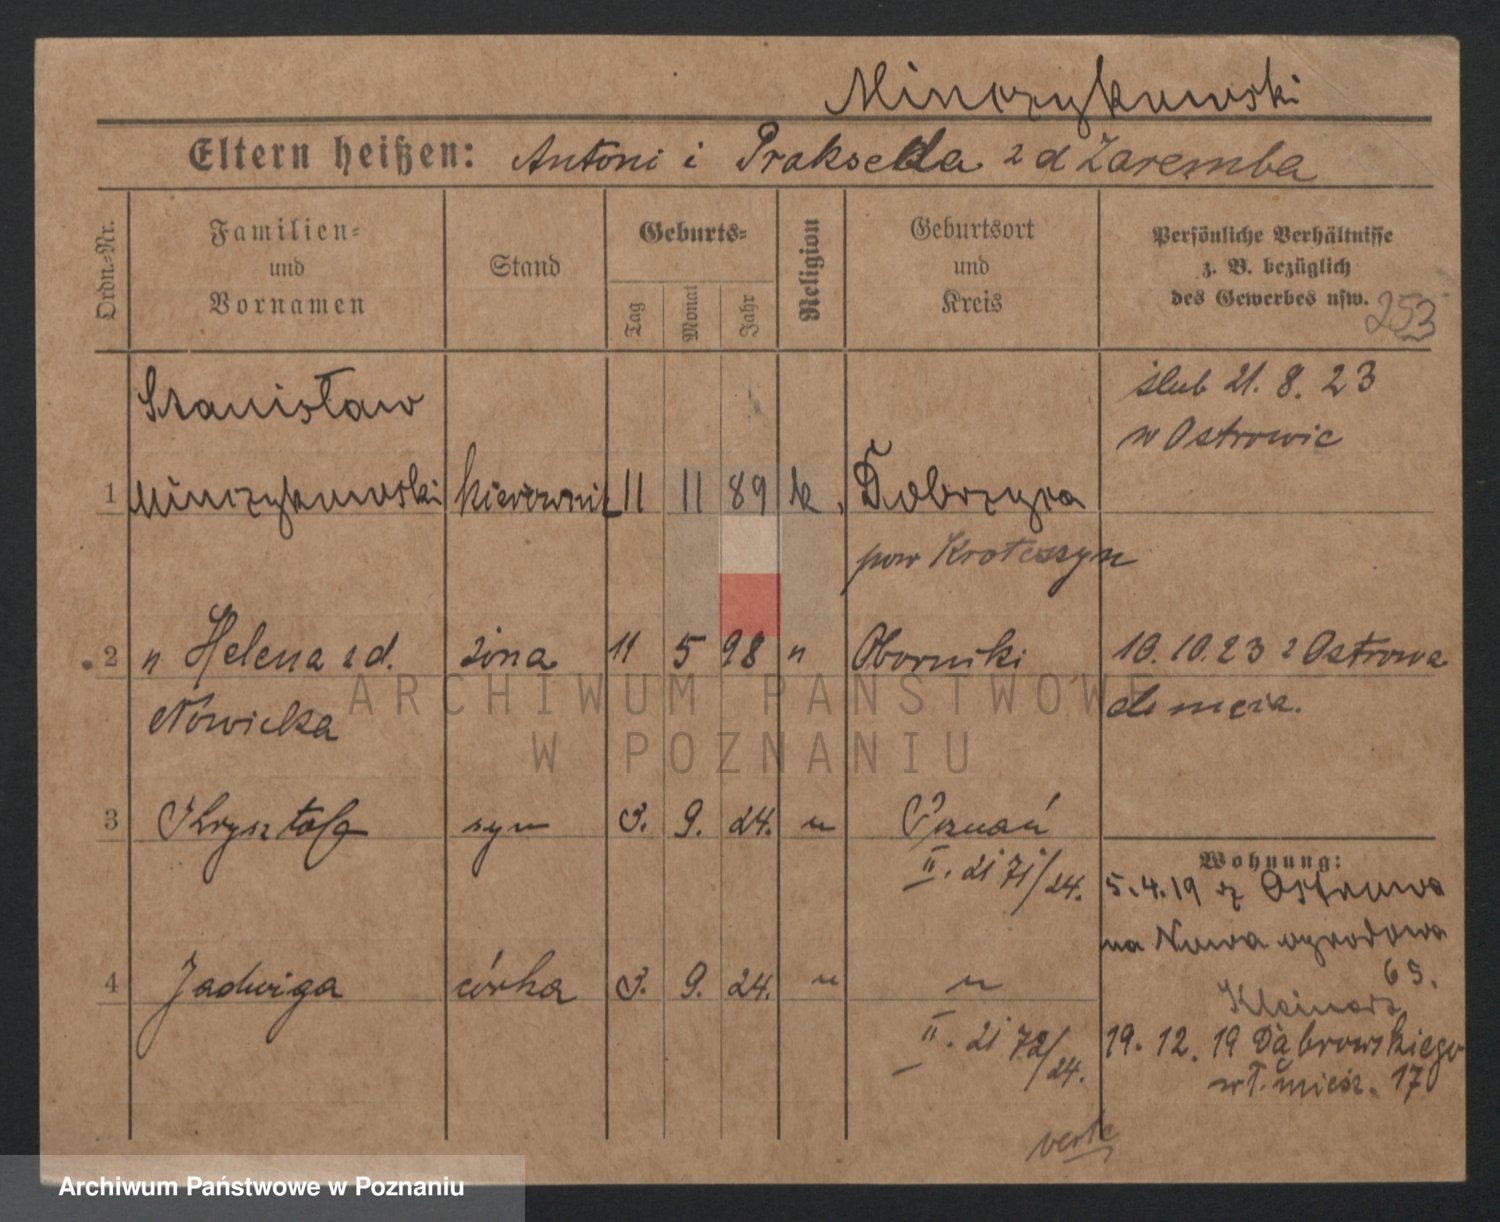 Minczykowski
Eltern heißen: Antoni i Prakseda z d Zaremba
Ordn.-Nr.
Familien-
und
Vornamen
Stand
Geburts-
Tag
Monat
Jahr
Religion
Geburtsort
und
Kreis
Persönliche Verhältnisse
z. B. bezüglich
des Gewerbes usw.
253
Stanisław
ślub 21. 8. 23
w Ostrowie
1 Minczykowski kierownik 11 11 89 k. Dobrzyca
pow Krotoszyn
2 " Helena z d. żona 11 5 98 " Oborniki 10.10.23 z Ostrowa
Nowicka
do męża.
3 Krysztofa syn 3. 9. 24. " Poznań
II. 2171/24.
Wohnung:
5.4.19 z Ostrowa
na Nowa ogrodowa
65.
4 Jadwiga córka 3. 9. 24. "
II. 2172/24.
19. 12. 19 Dąbrowskiego
wł. miesz. 17
verte
ARCHIWUM PAŃSTWOWE
W POZNANIU
Archiwum Państwowe w Poznaniu